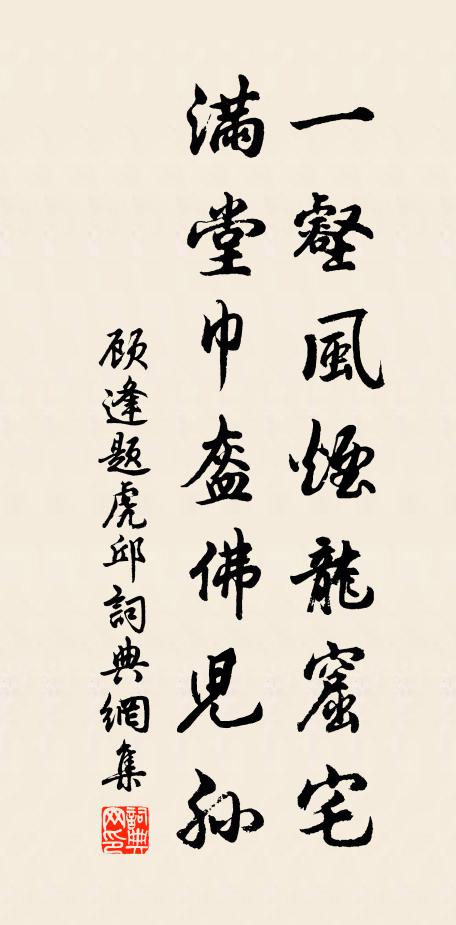 一壑風煙龍窟宅
滿堂巾盋佛兒孫
顧逢題虎邱詞典網集
詞典网印